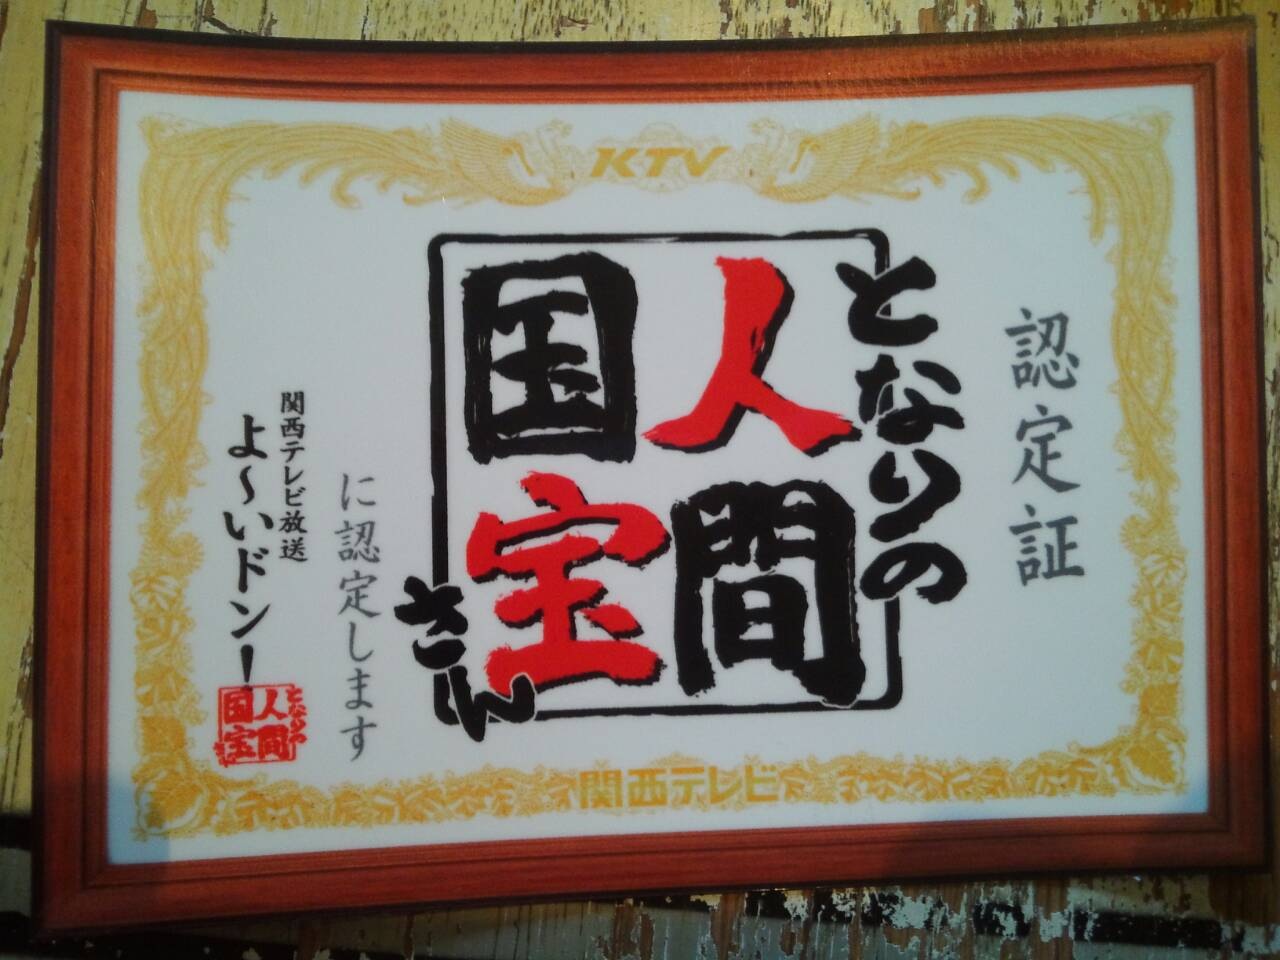 KTV
認定証
となりの
人間
国宝
さん
に認定します
関西テレビ放送
よ〜いドン！
となりの
人間
国宝
さん
関西テレビ